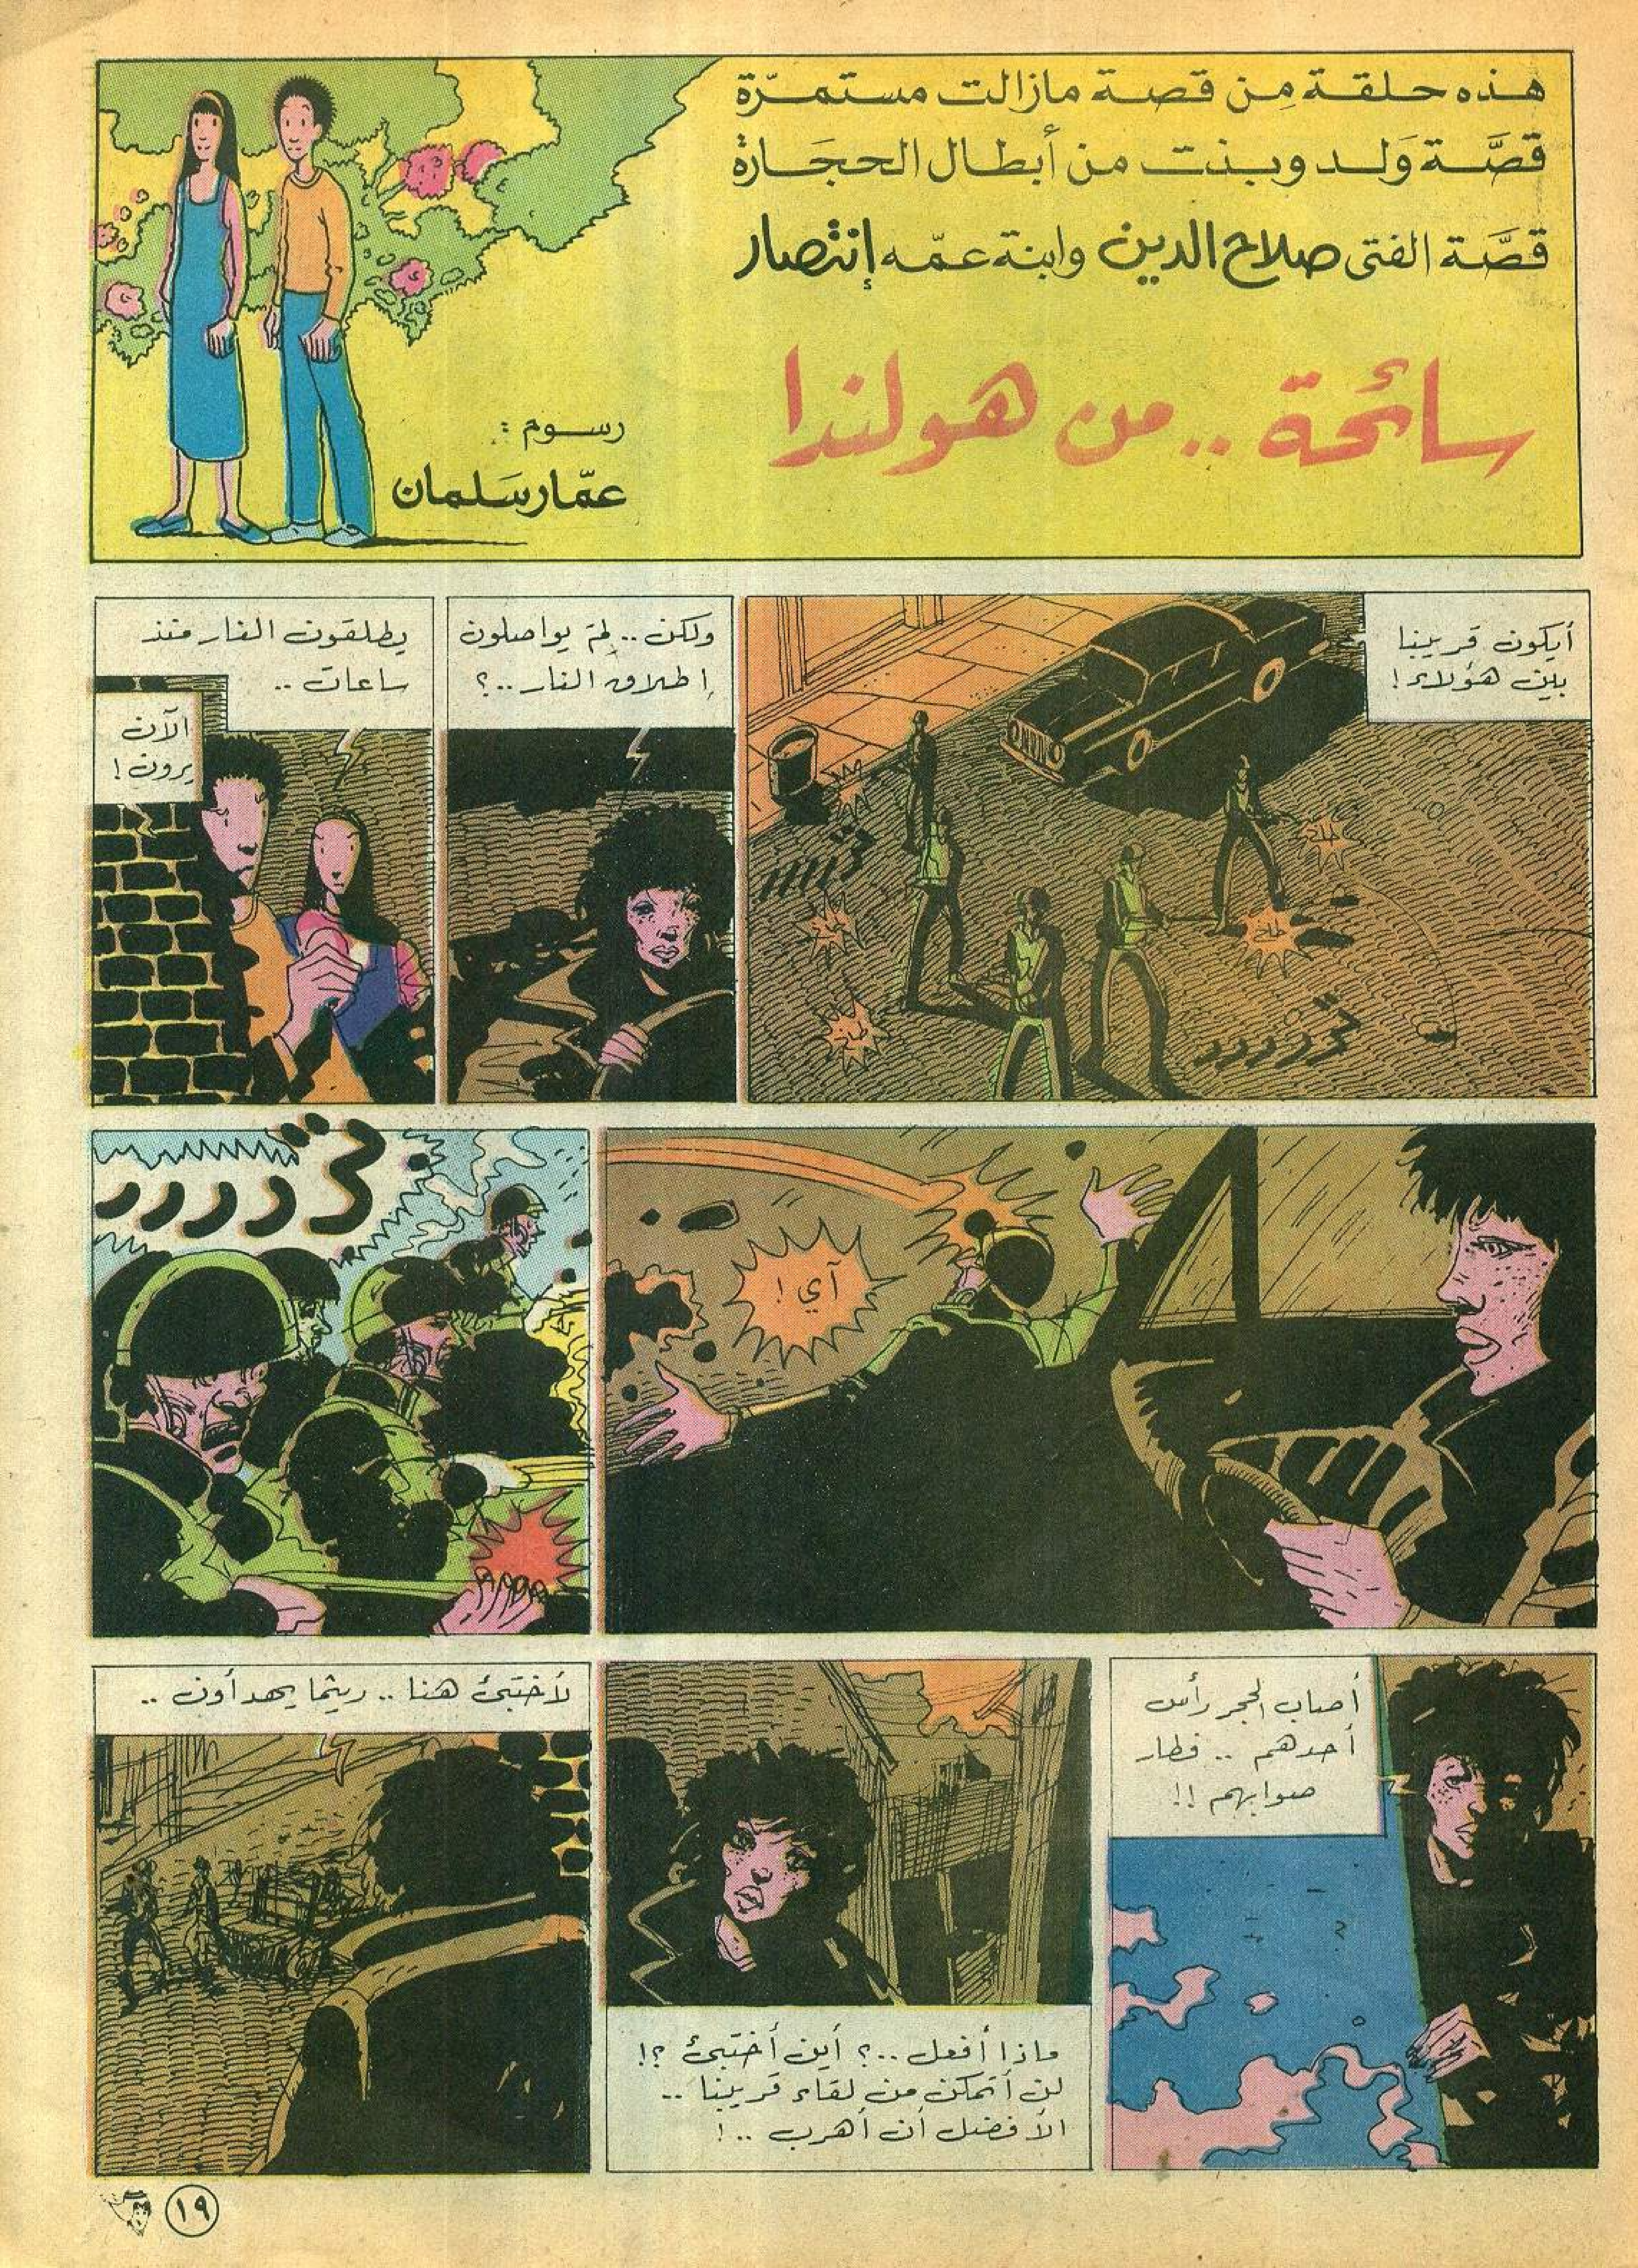 هذه حلقة مِن قصة مازالت مستمرّة
قصَّة وَلد وبنت من أبطال الحجَارة
قصَّة الفتى صلاح الدين وابنة عمّه إنتصار
سائحة .. من هولندا
رسوم :
عمّار سَلمان
أيكون قريبنا
بين هؤلاء !
طاخ
طاخ
طاخ
طاخ
ولكن .. لِمَ يواصلون
إطلاق النار .. ؟
يطلقون النار منذ
ساعات ..
الآن
يرون !
آي !
أصاب الحجر رأس
أحدهم .. فطار
صوابهم !!
ماذا أفعل .. ؟ أين أختبئ ؟!
لن أتمكن من لقاء قريبنا ..
الأفضل أن أهرب .. !
لأختبئ هنا .. ريثما يهدأون ..
١٩